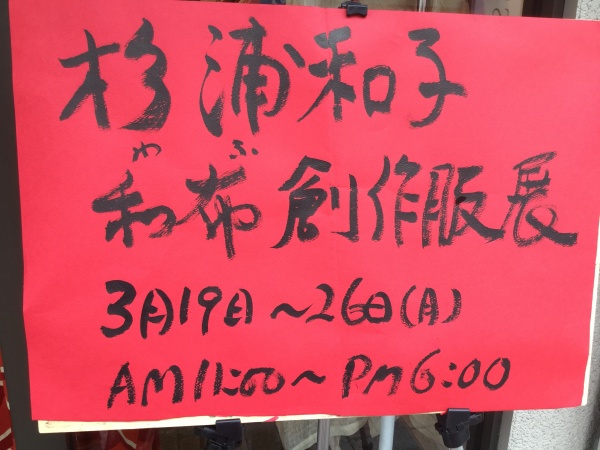 杉浦和子
わ ふ
和布創作服展
3月19日～26日(月)
AM11:00～PM6:00